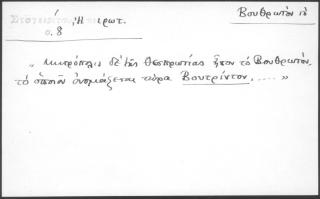 Βουθρωτὸν
σ. 8
„ Μητρόπολις δὲ τῆς Θεσπρωτίας ἦτον τὸ Βουθρωτόν,
τὸ ὁποῖον ὀνομάζεται τώρα Βουτρίντον, .... "